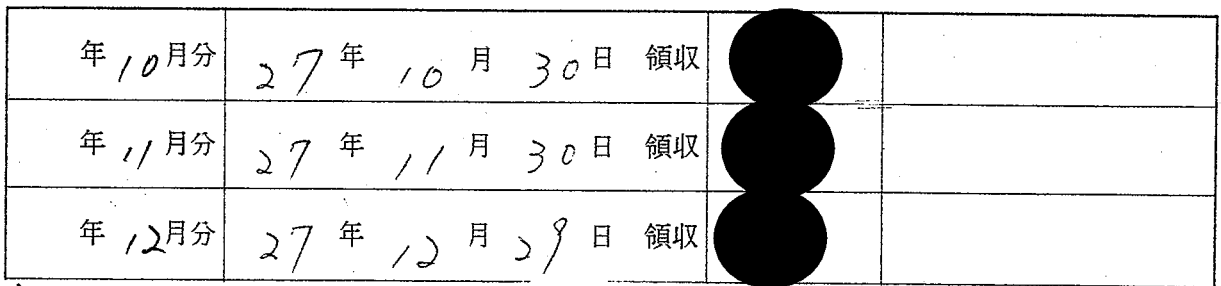 年10月分 27年 10月 30日 領収
年11月分 27年 11月 30日 領収
年12月分 27年 12月 29日 領収